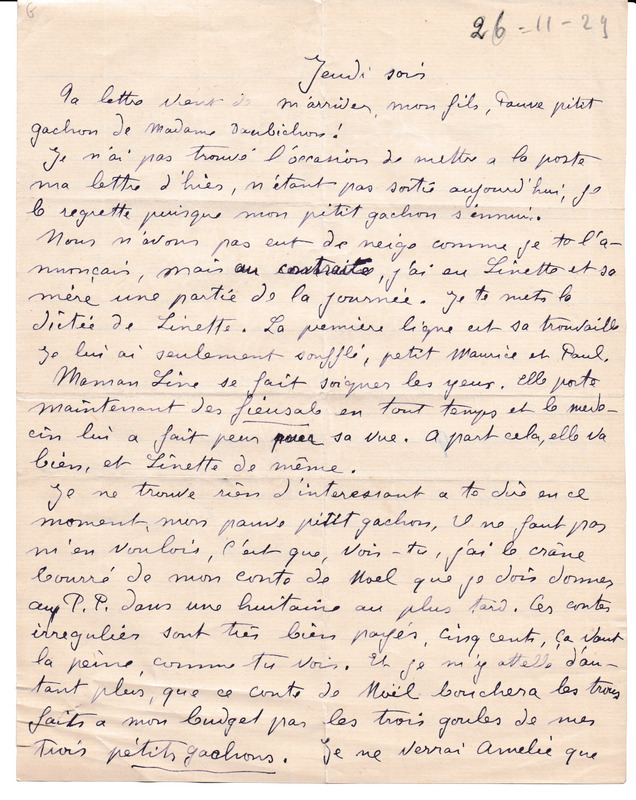 26-11-29
Jeudi soir
Ta lettre vient de m'arriver, mon fils, Pauve pitit
gachon de Madame Daubichon!
Je n'ai pas trouvé l'occasion de mettre a la poste
ma lettre d'hier, n'étant pas sortie aujourd'hui, je
le regrette puisque mon pitit gachon s'ennui.
Nous n'avons pas eut de neige comme je te l'a-
nonçais, mais au contraite, j'ai eu Linette et sa
mère une partie de la journée. Je te mets la
dictée de Linette. La première ligne est sa trouvaille
Je lui ai seulement soufflé, petit Maurice et Paul.
Maman Line se fait soigner les yeux. Elle porte
maintenant des en tout temps et le mede-
cin lui a fait peur pour sa vue. A part cela, elle va
bien, et Linette de même.
Je ne trouve rien d'interessant a te dire en ce
moment, mon pauve pitit gachon, il ne faut pas
m'en vouloir, C'est que, vois-tu, j'ai le crâne
bourré de mon conte de Noel que je dois donner
au P.P. dans une huitaine au plus tard. Ces contes
irreguliés sont très bien payés, cinq cents, ça vaut
la peine comme tu vois. Et je m'y attelle d'au-
tant plus, que ce conte de Noël bouchera les trous
faits a mon budget pas les trois goules de mes
trois pétits gachons. Je ne verrai Amelie que